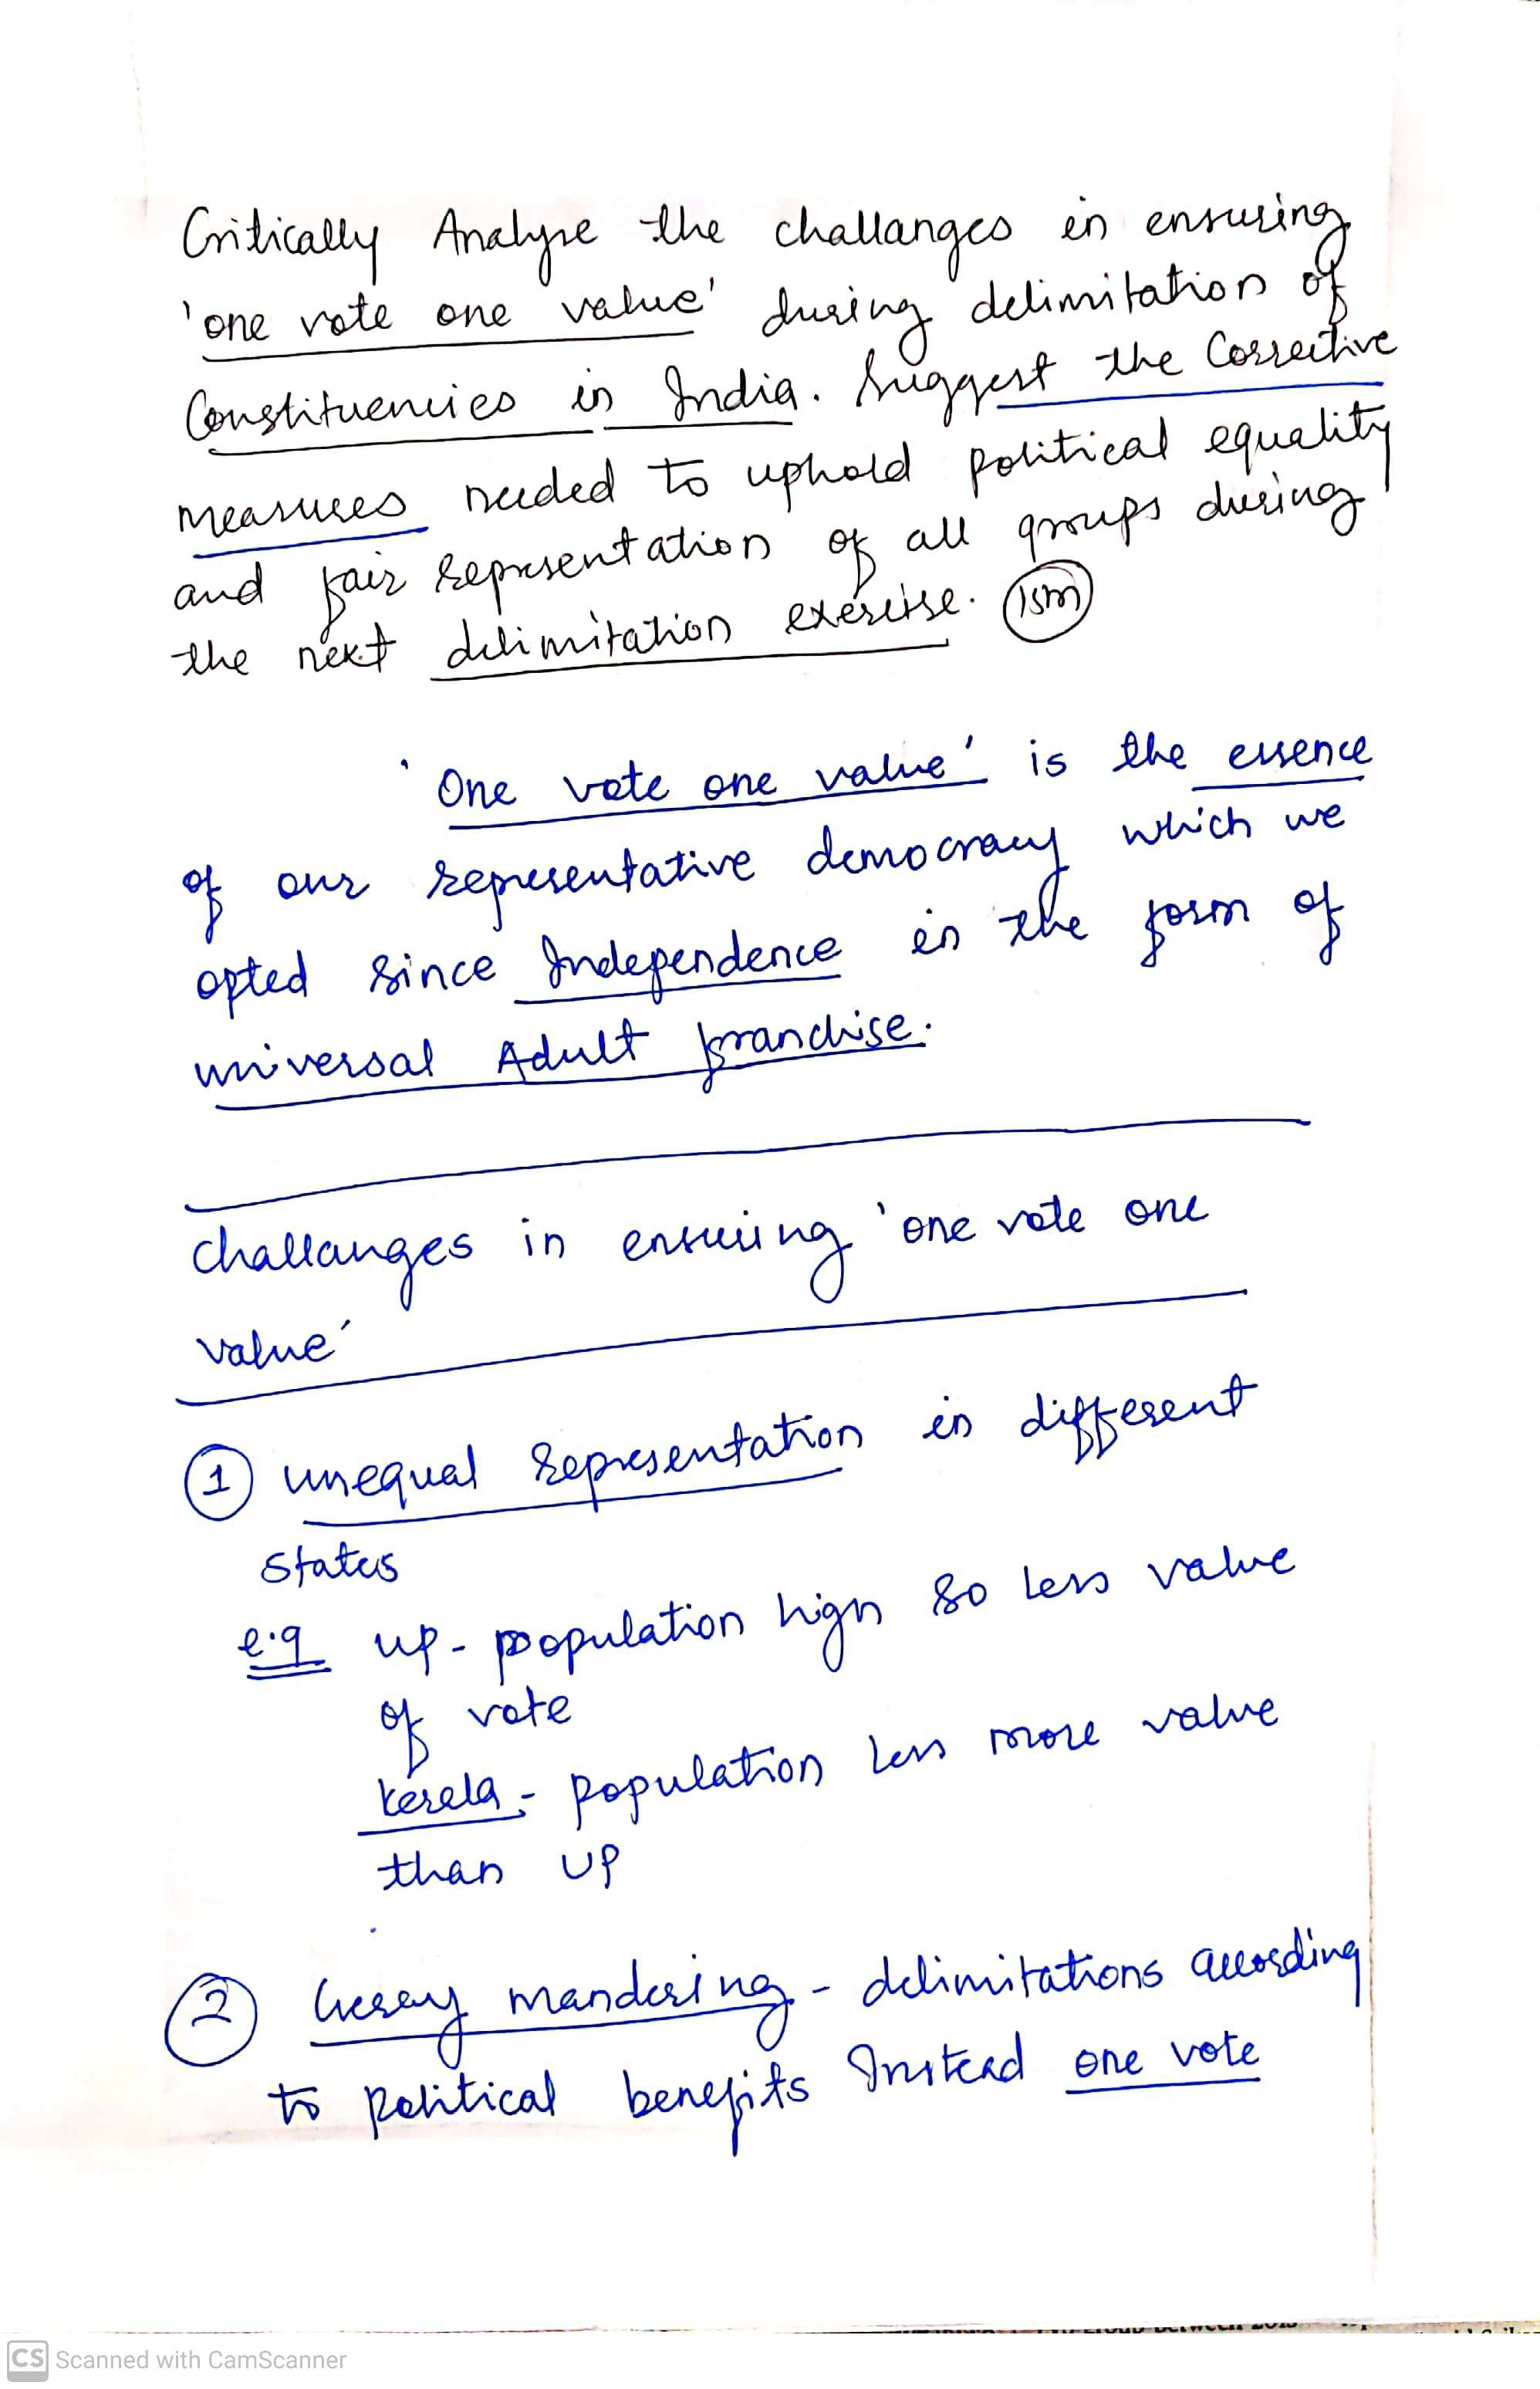 Critically Analyse the challanges in ensuring
'one vote one value' during delimitation of
Constituencies in India. Suggest the Corrective
measures needed to uphold political equality
and fair representation of all groups during
the next delimitation exercise. 15m
'One vote one value' is the essence
of our representative democracy which we
opted since Independence in the form of
universal Adult franchise.
challanges in ensuring 'one vote one
value'
1 unequal representation in different
states
e.g up - population high so less value
of vote
kerela - population less more value
than UP
2 Gerry mandering - delimitations according
to political benefits Instead one vote
CS Scanned with CamScanner